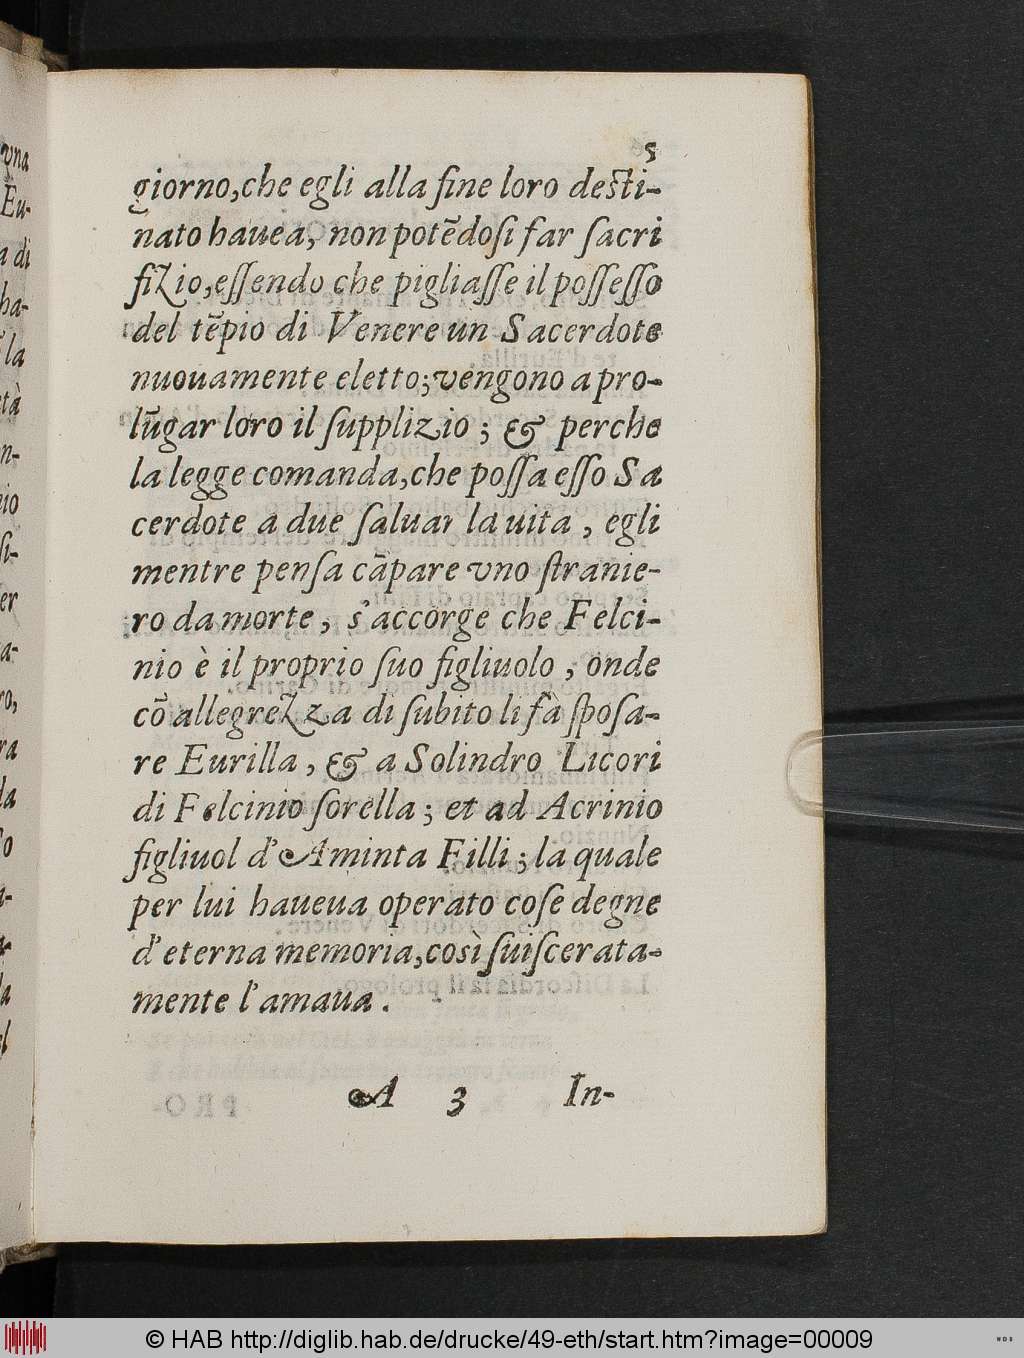 5
giorno,che egli alla fine loro desti-
nato hauea, non potẽdosi far sacri
fizio,essendo che pigliasse il possesso
del tẽpio di Venere un Sacerdote
nuouamente eletto; vengono a pro-
lũgar loro il supplizio ; & perche
la legge comanda,che possa esso Sa
cerdote a due saluar la uita , egli
mentre pensa cãpare vno stranie-
ro da morte , s'accorge che Felci-
nio è il proprio suo figliuolo , onde
cõ allegrezza di subito li fà sposa-
re Eurilla , & a Solindro Licori
di Felcinio sorella ; et ad Acrinio
figliuol d'Aminta Filli ; la quale
per lui haueua operato cose degne
d'eterna memoria,così suiscerata-
mente l'amaua .
A 3 In-
vna
Eu-
a di
ha-
la
età
n-
nio
si-
er
a-
ro,
ra
la
© HAB http://diglib.hab.de/drucke/49-eth/start.htm?image=00009